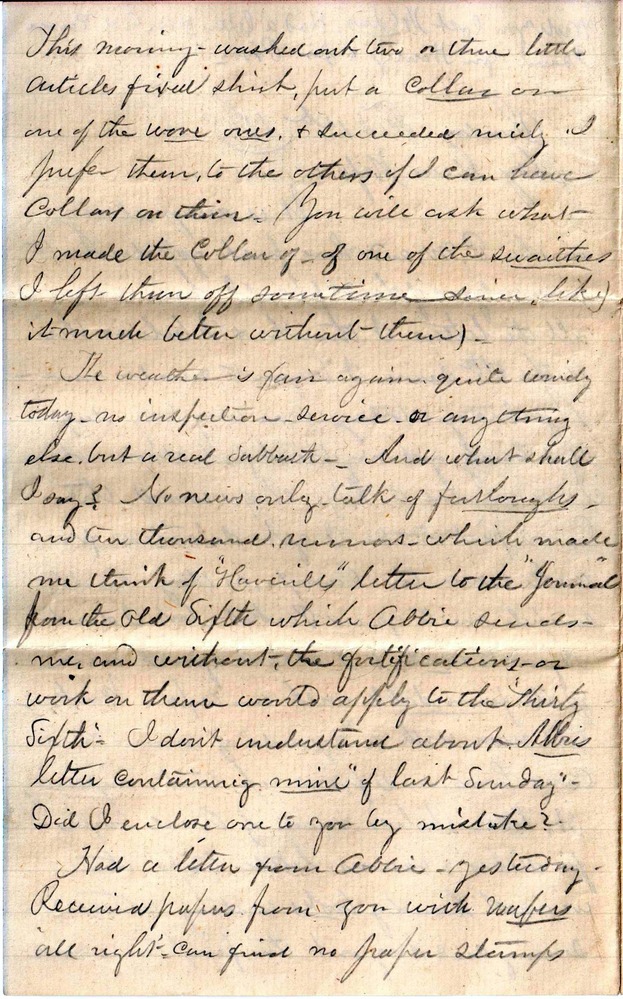 This morning - washed out two or three little
articles fixed shirt, put a Collar on
one of the wove ones, & succeeded nicely. I
prefer them, to the others if I can have
Collars on them - You will ask what
I made the Collar of - of one of the
I left them off sometime since, like)
it much better without them) -
The weather is fair again. quite windy
today - no inspection - service - or anything
else, but a real Sabbath - And what shall
I say? No news only talk of furloughs -
and ten thousand rumors - which made
me think of "Haverills" letter to the "Journal"
from the old Sixth which Abbie sends -
me, and without, the fortifications - or
work on them would apply to the "Thirty
Sixth" - I don't understand about Abbies
letter containing mine "of last Sunday" -
Did I enclose one to you by mistake?
Had a letter from Abbie - yesterday -
Received papers from you with wafers
all right - can find no paper stamps